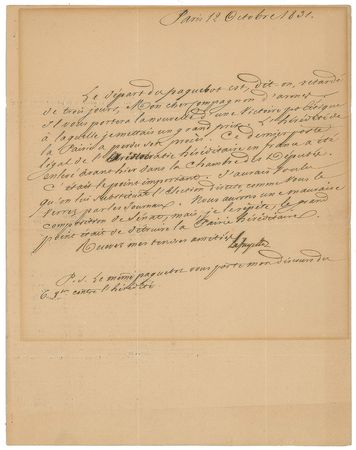 Paris 12 Octobre 1831.
Le départ du paquebot est, dit-on, retardé
de trois jours, Mon cher compagnon d'armes
il vous portera la nouvelle d'une victoire politique
à laquelle je mettais un grand prix. L'hérédité de
la Pairie a perdu son procès. Ce dernier poste
légal de l'aristocratie héréditaire en france a été
enlevé avant hier dans la Chambre des Députés.
C'était le point important. J'aurais voulu
qu'on lui substituât l'élection directe comme vous le
verrez par les journaux. Nous aurons une mauvaise
composition de Sénat, mais je le répète, le grand
point était de détruire la Pairie héréditaire.
Recevez mes tendres amitiés
Lafayette
P. S. Le même paquebot vous porte mon discours du
6 8bre contre l'hérédité.